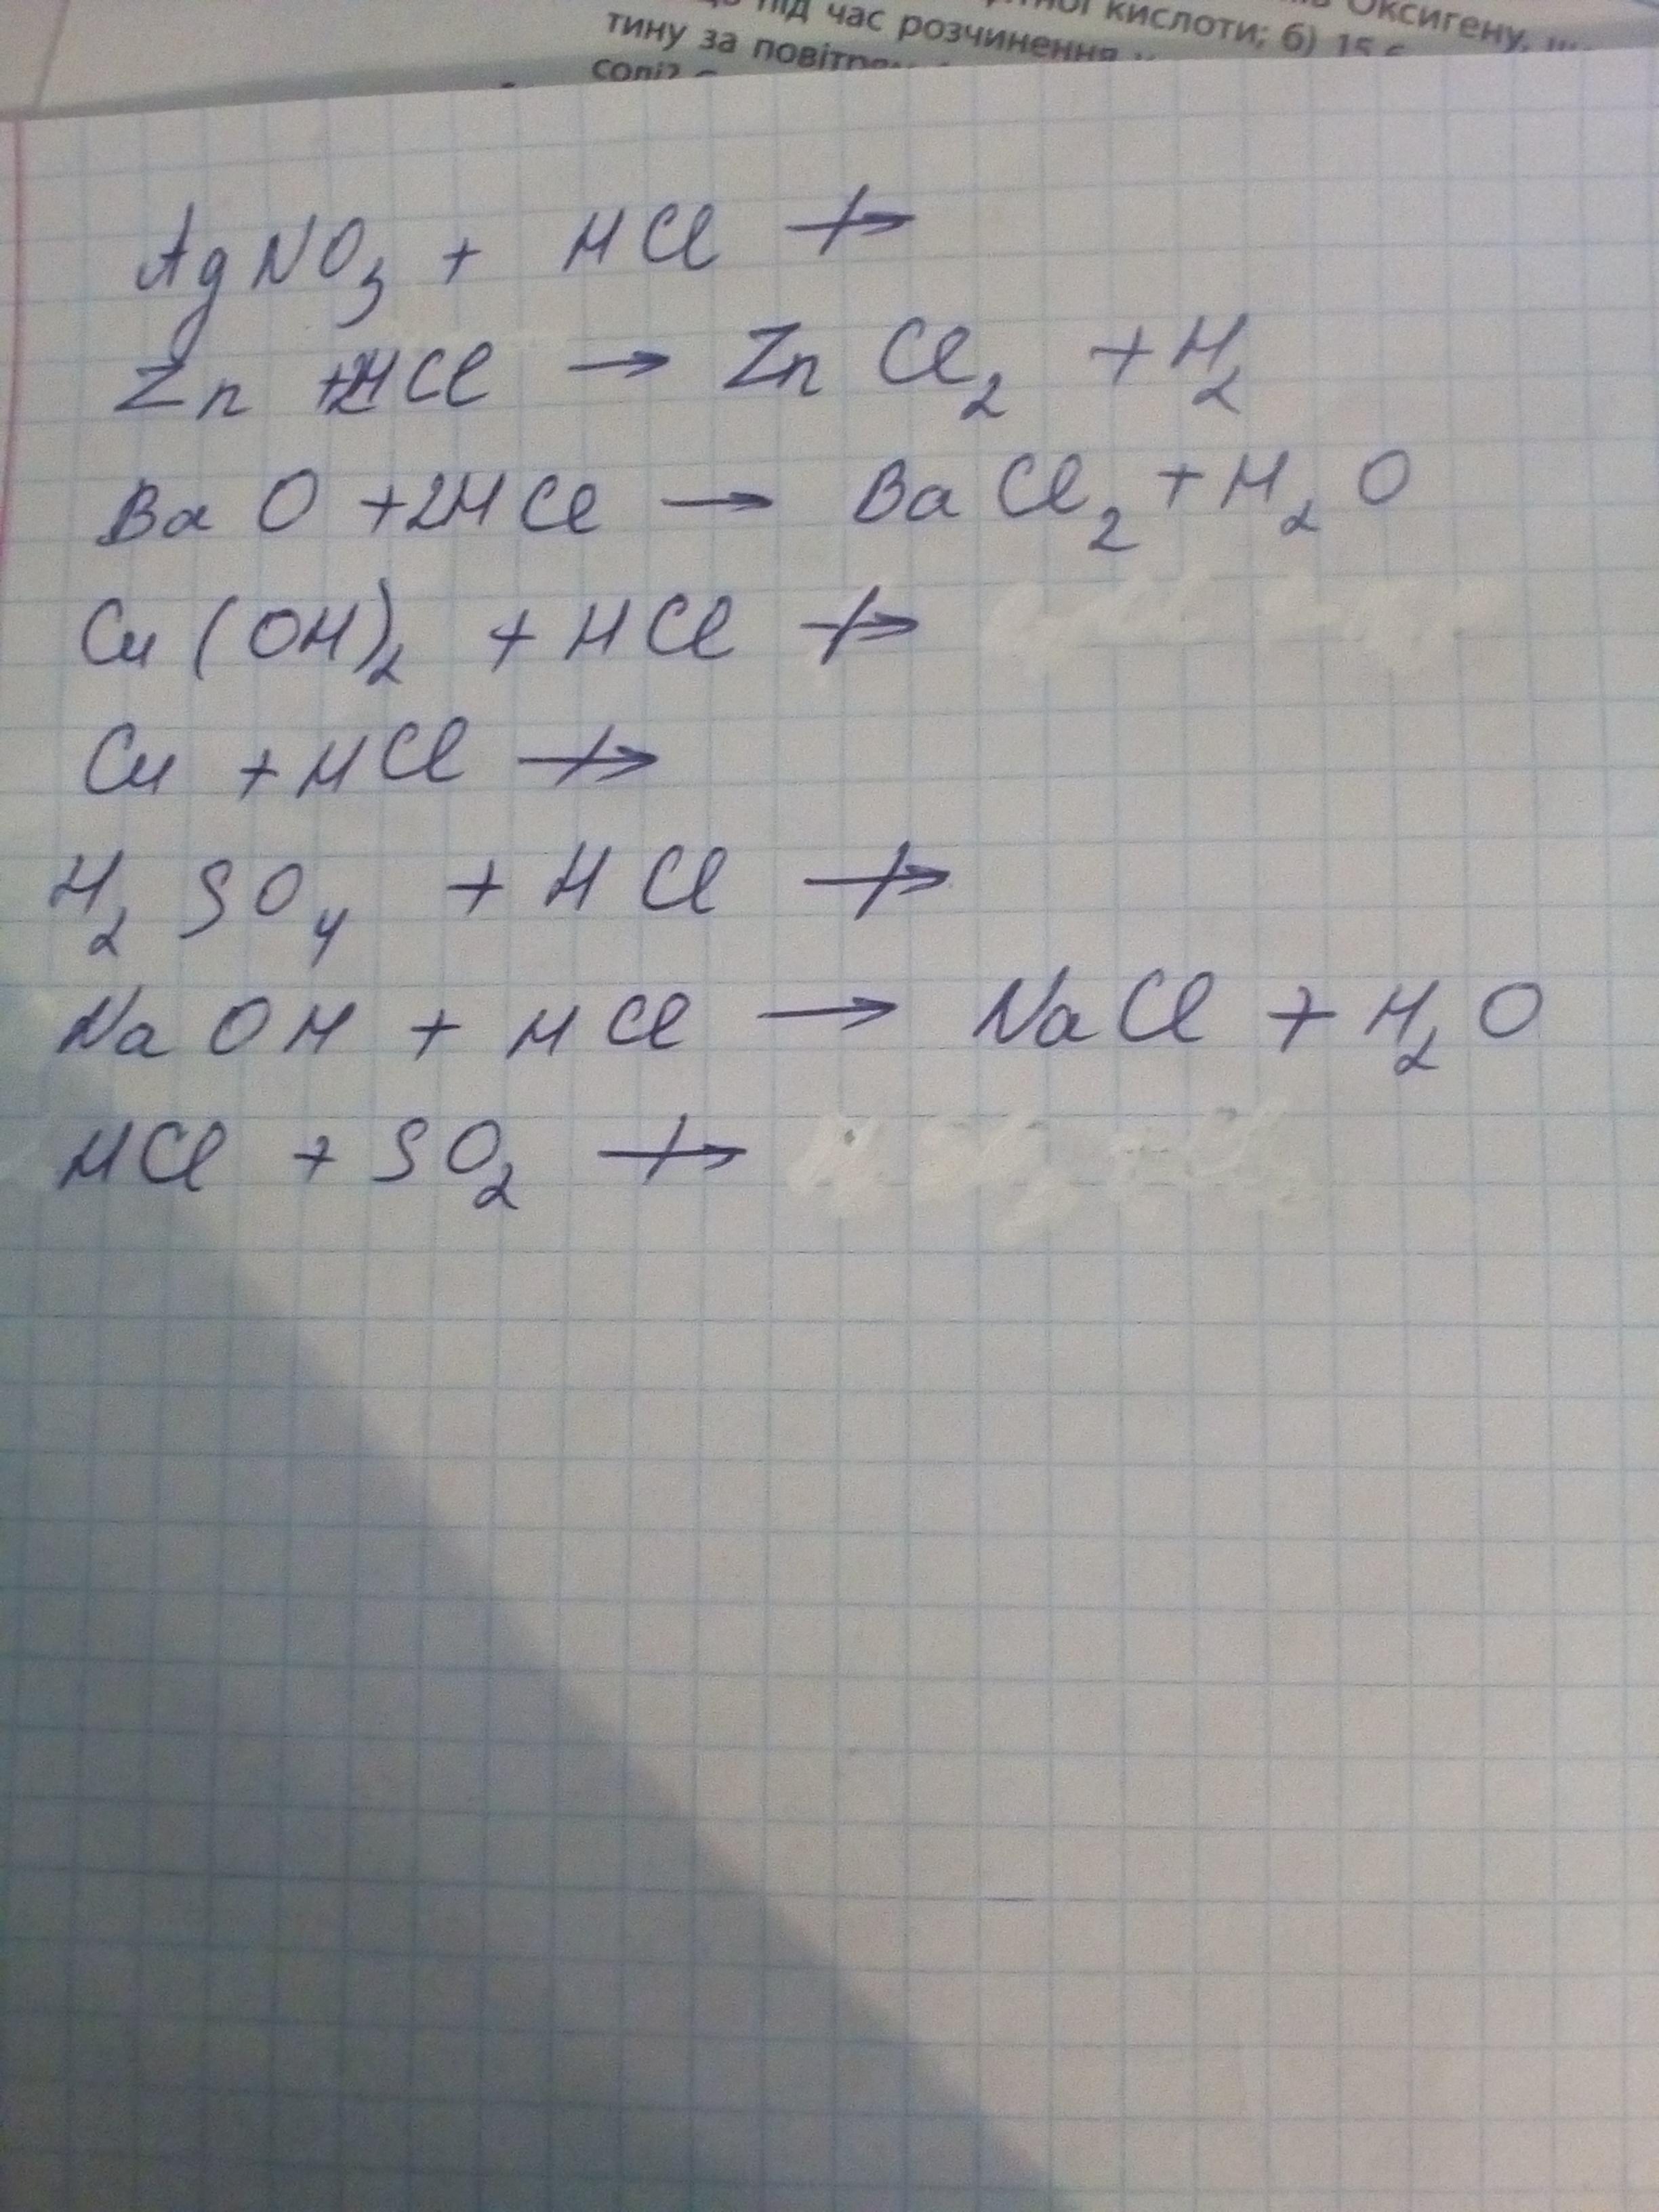 Оксигену,
ної кислоти; б) 15 г
під час розчинення
тину за повітрям
солі?
AgNO₃ + HCl ↛
Zn + 2HCl → ZnCl₂ + H₂
BaO + 2HCl → BaCl₂ + H₂O
Cu(OH)₂ + HCl ↛
Cu + HCl ↛
H₂SO₄ + HCl ↛
NaOH + HCl → NaCl + H₂O
HCl + SO₂ ↛